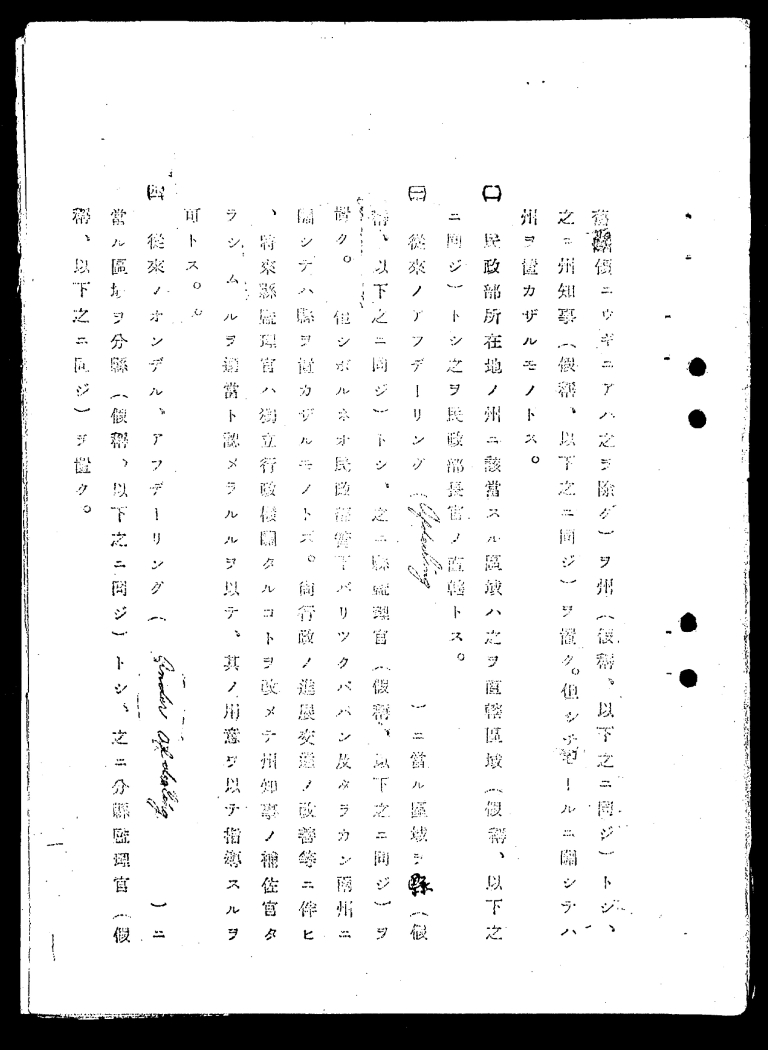 ニウギニアハ之ヲ除ク)ヲ州(假稱、以下之ニ同ジ)トシ、
之ニ州知事(假稱、以下之ニ同ジ)ヲ置ク。但シ ールニ關シテハ
州ヲ置カザルモノトス。
(二) 民政部所在地ノ州ニ該當スル區域ハ之ヲ直轄區域(假稱、以下之
ニ同ジ)トシ之ヲ民政部長官ノ直轄トス。
(三) 從來ノアフデーリング(Afdeeling)ニ當ル區域ヲ縣(假
稱、以下之ニ同ジ)トシ、之ニ縣監理官(假稱、以下之ニ同ジ)ヲ
置ク。 但シボルネオ民政部管下バリツクパパン及タラカン兩州ニ
關シテハ縣ヲ置カザルモノトス。尚行政ノ進展交通ノ改善等ニ伴ヒ
、將來縣監理官ハ獨立行政機關タルコトヲ改メテ州知事ノ補佐官タ
ラシムルヲ適當ト認メラルルヲ以テ、其ノ用意ヲ以テ指導スルヲ
可トス。。
(四) 從來ノオンデル、アフデーリング(Onder Afdeeling)ニ
當ル區域ヲ分縣(假稱、以下之ニ同ジ)トシ、之ニ分縣監理官(假
稱、以下之ニ同ジ)ヲ置ク。